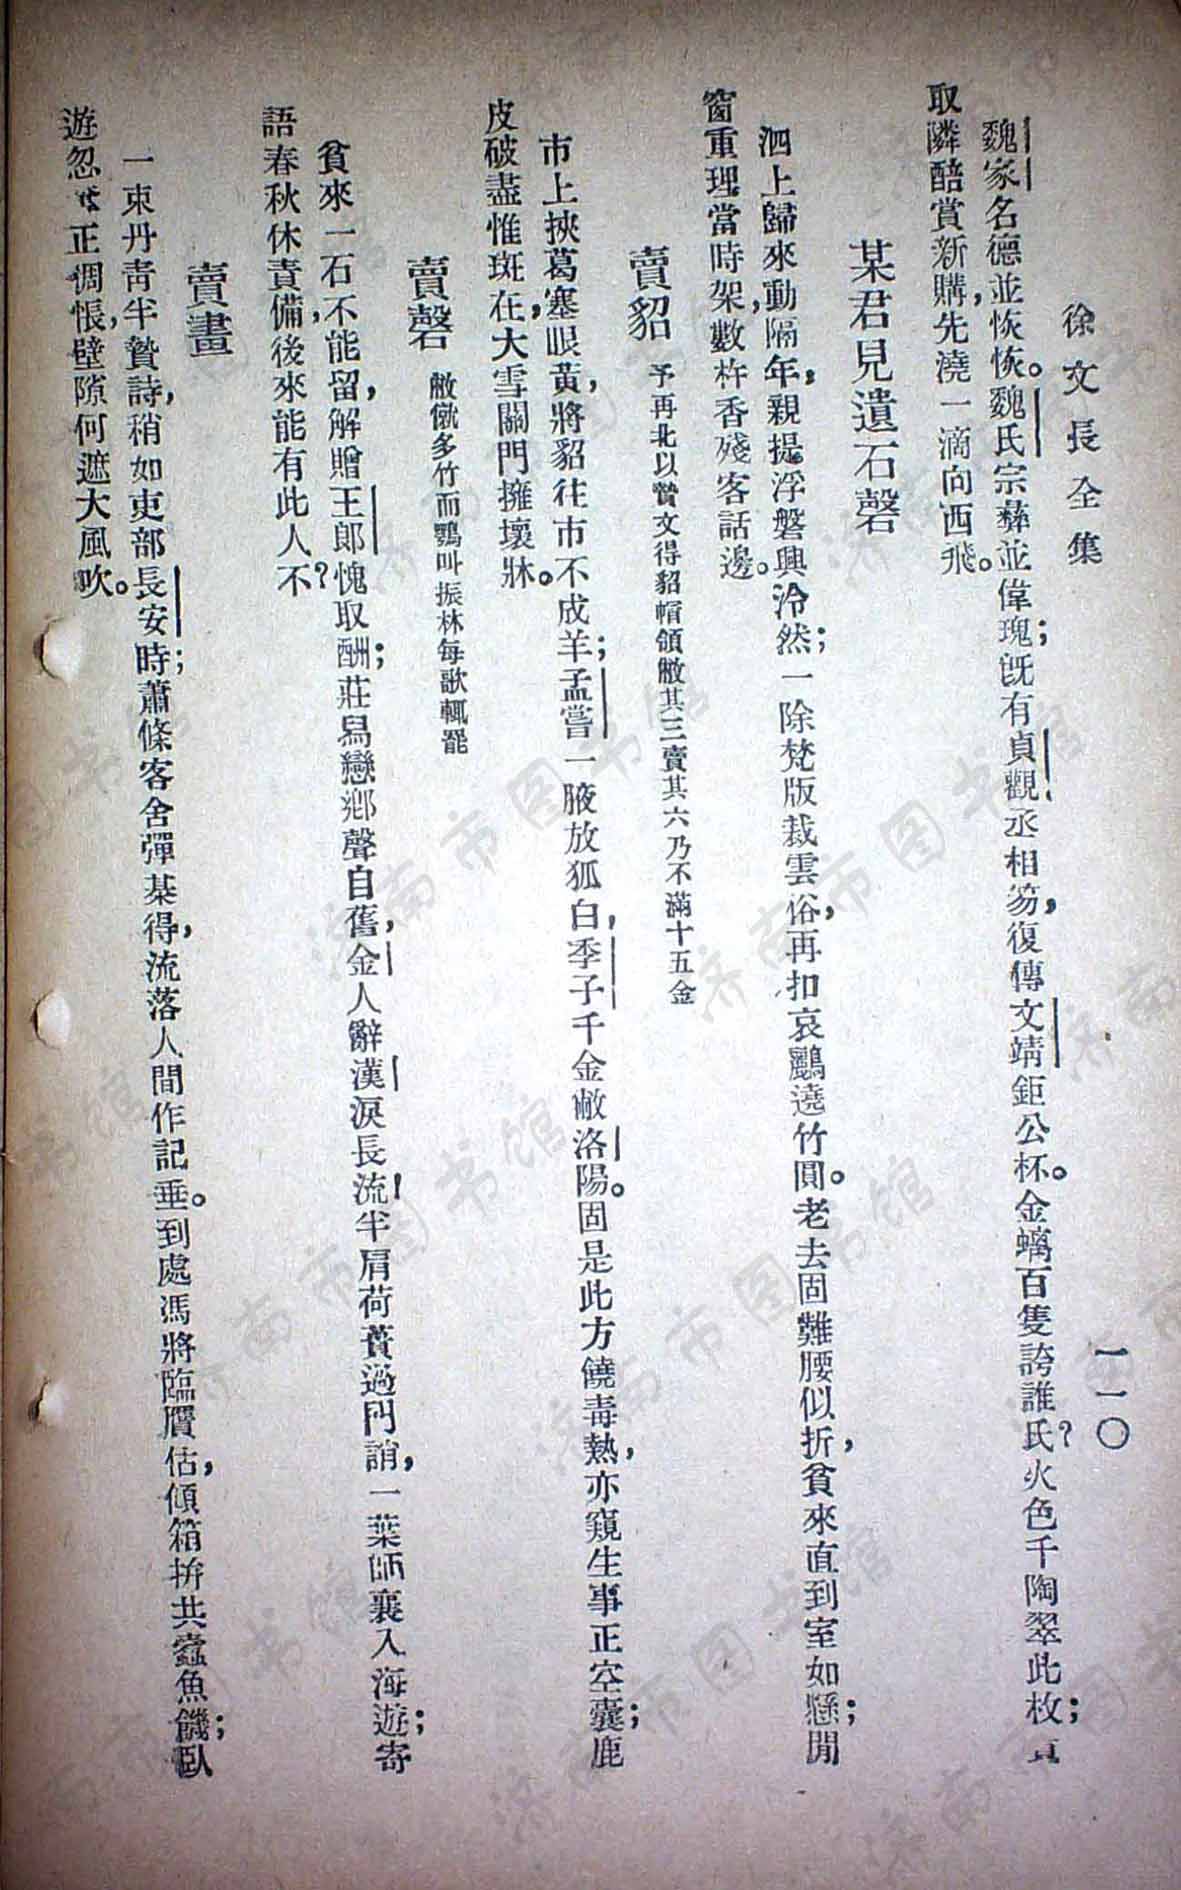 徐文長全集
一一〇
魏家名德並恢恢。魏氏宗彝並偉瑰;旣有貞觀丞相笏,復傳文靖鉅公杯。金螭百隻誇誰氏?火色千陶翠此枚;
取隣醅賞新購,先澆一滴向西飛。
某君見遺石磬
泗上歸來動隔年,親提浮磐興泠然;一除梵版裁雲俗,再扣哀鸝遶竹圓。老去固難腰似折,貧來直到室如懸;閒
窗重理當時架,數杵香殘客話邊。
賣貂 予再北以贊文得貂帽領敝其三賣其六乃不滿十五金
市上挾葛塞眼黃,將貂往市不成羊;孟嘗一腋放狐白,季子千金敝洛陽。固是此方饒毒熱,亦窺生事正空囊;鹿
皮破盡惟斑在,大雪關門擁壞牀。
賣磬 敝僦多竹而鸚叫振林每歌輒罷
貧來一石不能留,解贈王郞愧取酬;莊舃戀鄕聲自舊,金人辭漢淚長流!半肩荷蕢過門誚,一葉師襄入海遊;寄
語春秋休責備,後來能有此人不?
賣畫
一束丹靑半贄詩,稍如吏部長安時;蕭條客舍彈棊得,流落人間作記垂。到處馮將臨贋估,傾箱拚共蠹魚饑;臥
遊忽 正惆悵,壁隙何遮大風吹。